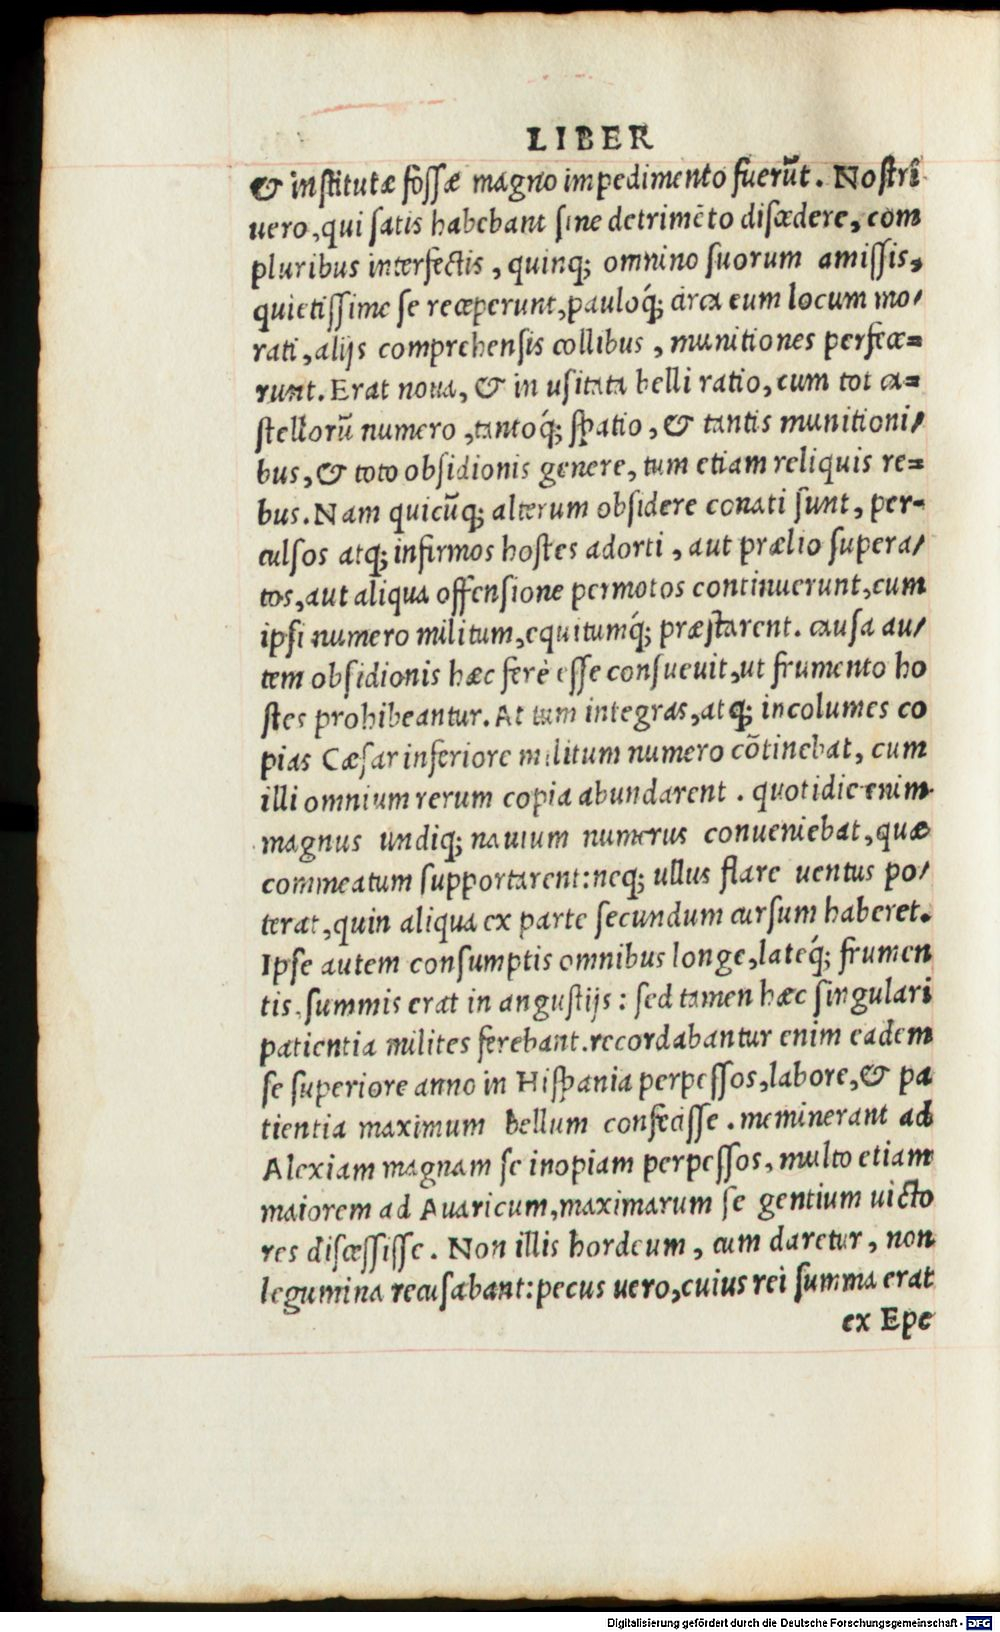 LIBER
& institutæ fossæ magno impedimento fuerūt. Nostri
uero, qui satis habebant sine detrimēto discedere, com
pluribus interfectis, quinq; omnino suorum amissis,
quietissime se receperunt, pauloq́; circa eum locum mo/
rati, alijs comprehensis collibus, munitiones perfece=
runt. Erat noua, & in usitata belli ratio, cum tot ca=
stellorū numero, tantoq́; spatio, & tantis munitioni/
bus, & toto obsidionis genere, tum etiam reliquis re=
bus. Nam quicūq; alterum obsidere conati sunt, per-
culsos atq; infirmos hostes adorti, aut prælio supera/
tos, aut aliqua offensione permotos continuerunt, cum
ipsi numero militum, equitumq́; præstarent. causa au/
tem obsidionis hæc ferè esse consueuit, ut frumento ho
stes prohibeantur. At tum integras, atq; incolumes co
pias Cæsar inferiore militum numero cōtinebat, cum
illi omnium rerum copia abundarent. quotidie enim
magnus undiq; nauium numerus conueniebat, quæ
commeatum supportarent: neq; ullus flare uentus po/
terat, quin aliqua ex parte secundum cursum haberet.
Ipse autem consumptis omnibus longe, lateq́; frumen
tis, summis erat in angustijs: sed tamen hæc singulari
patientia milites ferebant. recordabantur enim eadem
se superiore anno in Hispania perpessos, labore, & pa
tientia maximum bellum confecisse. meminerant ad
Alexiam magnam se inopiam perpessos, multo etiam
maiorem ad Auaricum, maximarum se gentium uicto
res discessisse. Non illis hordeum, cum daretur, non
legumina recusabant: pecus uero, cuius rei summa erat
ex Epe
Digitalisierung gefördert durch die Deutsche Forschungsgemeinschaft - DFG